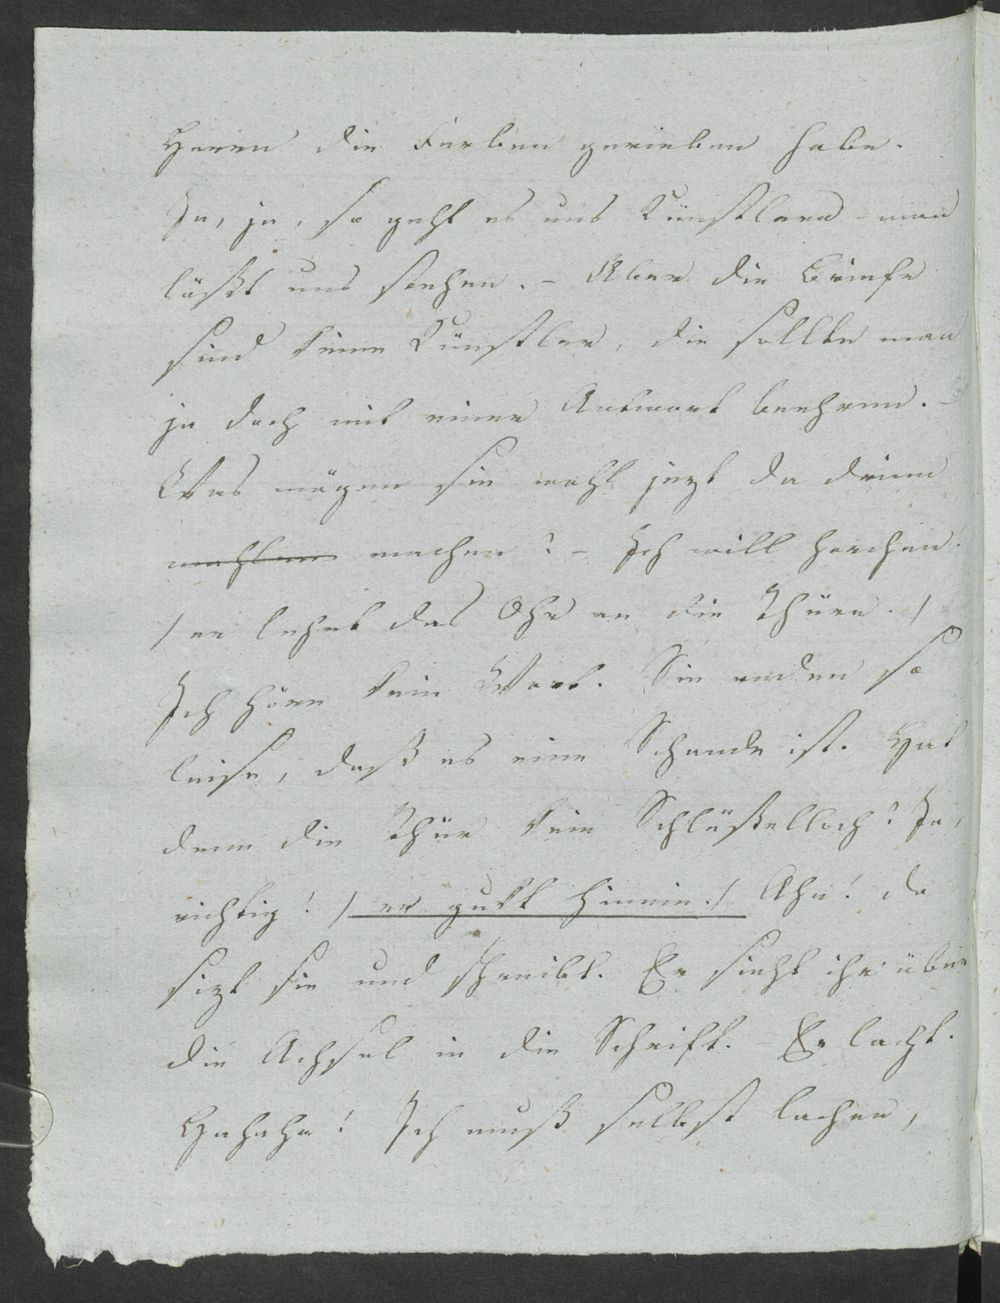 Herrn die Farben gerieben habe.
Ja, ja, so geht es uns Künstlern – man
läßt uns stehen. – Aber die Briefe
sind keine Künstler, die sollte man
ja doch mit einer Antwort beehren. –
Was mögen sie wohl jezt da drinn
machen? – Ich will horchen.
/ er lehnt das Ohr an die Thüre. /
Ich höre kein Wort. Sie reden so
leise, daß es eine Schande ist. Hat
denn die Thür kein Schlüßelloch? Ja,
richtig! / er gukt hinein. / Aha! da
sizt sie und schreibt. Er sieht ihr über
die Achsel in die Schrift. – Er lacht.
Hahaha! Ich muß selbst lachen,